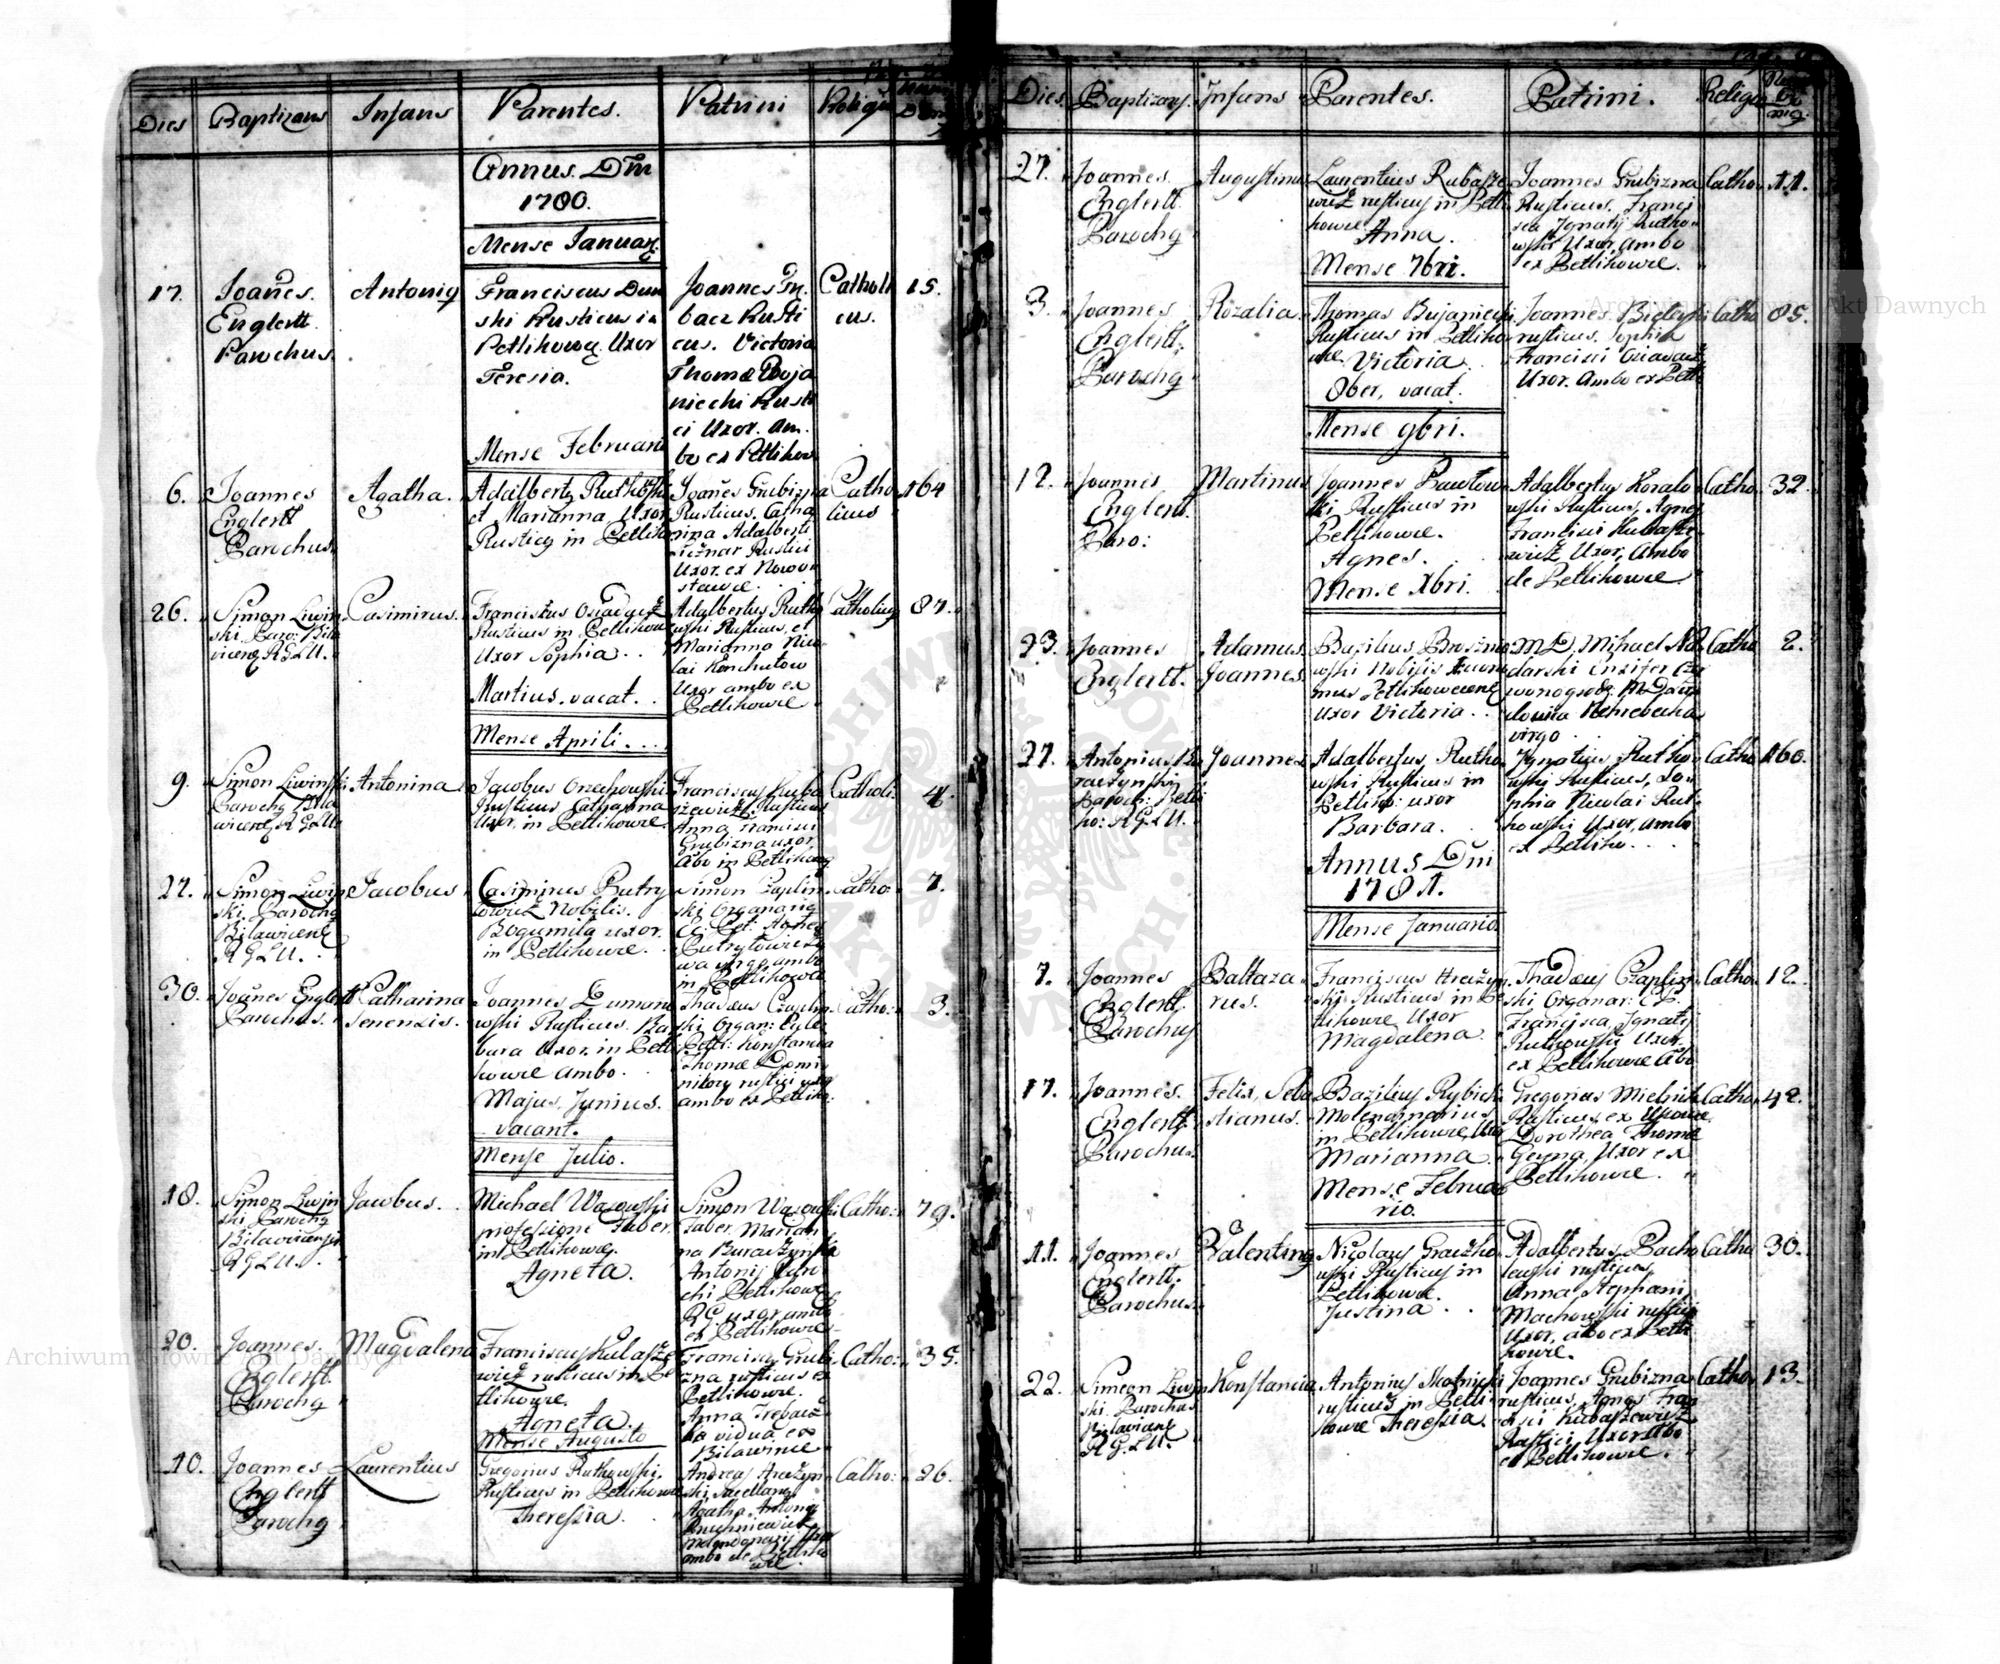 Dies
Baptizans
Infans
Parentes.
Patrini
Religio
Annus Dni
1780.
Mense Januar.
17.
Joañes.
Englertt
Parochus
Antonig
Franciscus Dum
ski Rusticus in
Petlikowe Uxor
Teresia.
Joannes
Rusti
cus. Victoria
Thomæ Boja
niechi Rusti
ci Uxor. Am.
bo ex Petlikow
Catholi
cus.
15.
Mense Februarii
6.
Joannes
Englertt
Parochus
Agatha.
Adalbertg Rutkowski
et Marianna Uxor
Rusticg in Petliko
Joañes Grubizna
Rusticus. Catha
rina Adalberti
Rustici
Uxor. ex Nowo
stawce.
Catho
licus
164
26.
Simon Liwin
ski. Paro: Bila
vicens R G L U.
Casimirus.
Franciszus
Rusticus in Petlikow
Uxor Sophia.
Adalbertus Rutko
wski Rusticus et
Marianna Nico
lai
Uxor ambo ex
Petlikowce
Catholicg
87.
Martius. vacat.
Mense Aprili.
9.
Simon Liwinski
Parochg Bila
wiceng R G L U.
Antonina
Jacobus Orzehowski
Rusticus Catharina
Uxor, in Petlikowce.
Franciscus Kuba
szewicz Rusticus
Anna Francisci
Grubizna uxor,
Abo in Petlikowce
Catholi:
4.
27.
Simon Liwin
ski. Parochg
Bilawicens
R G L U.
Jacobus
Casimirus Butry
towicz Nobilis.
Bogumila uxor.
in Petlikowce.
Simon Czaplin
ski Organarig
Ec. Pet. Agnes
Butrytowiczo
wa virgo ambo
in Petlikowce
Catho
7.
30.
Joañes Englertt
Parochus.
Catharina
Senensis.
Joannes
wski Rusticus. Ba
bara Uxor in Petli
kowce Ambo.
Thadæus Czaplin
ski Organ: Eccle:
Petl: Konstancia
Thomæ Domi
rustici uxor
ambo ex Petliko.
Catho:
3.
Majus, Junius.
vacant.
Mense Julio.
18.
Simon Liwin
ski Parochg
Bilawicensis
R G L U.
Jacobus.
Michael Wasowski
professione Faber
in Petlikowce.
Agneta.
Simon Wasowski
Faber Marian
na Buraczynska
Antonij Paro
chi Petlikowc
R G. uxor ambo
ex Petlikowce
Catho:
79.
20.
Joannes.
Englertt
Parochg
Magdalena
Franciscus Kubasze
wicz rusticus in Pe
tlikowce.
Agneta.
Franciscg Grubi
zna rusticus ex
Petlikowce.
Anna Trebacz
ka vidua ex
Bilawince
Catho:
35.
Mense Augusto
10.
Joannes
Englertt
Parochg
Laurentius
Gregorius Rutkowski
Rusticus in Petlikowc
Theressia.
Andreas
Agatha Antonij
ambo de Petliko
wce.
Catho:
26.
Dies
Baptizans.
Infans
Parentes.
Patrini.
Religio
27.
Joannes.
Englertt.
Parochg
Augustinus
Laurentius Kubasze
wicz rusticus in Petli
kowce
Anna.
Joannes Grubizna
Rusticus. Franci
sca Ignatij Rutko
wski Uxor, Ambo
ex Petlikowce.
Catho
11.
Mense 7bri.
3.
Joannes
Englertt.
Parochg
Rozalia.
Thomas Bujaniecki
Rusticus in Petliko
wce.
Victoria
Joannes
rusticus. Sophia
Francisci
Uxor. Ambo ex Petli
Catho
85.
8ber, vacat.
Mense 9bri.
12.
Joannes
Englertt.
Paro:
Martinus
Joannes Pawlow
ski Rusticus in
Petlikowce.
Agnes.
Adalbertus Koralo
wski Rusticus, Agnes
Francisci Kubasze
wicz Uxor, Ambo
de Petlikowce
Catho
32.
Mense Xbri.
23.
Joannes
Englertt.
Adamus
Joannes.
Bazilius
wski Nobilis
mus Petlikowcens
Uxor Victoria.
M D. Mihael
darski Ensifer Czer
wonogrod:
virgo
Catho
2.
27.
Antonius Bu
raczynski
Paroch: Petli
ko: R G L U.
Joannes
Adalbertus Rutko
wski Rusticus in
Petliko: uxor
Barbara.
Ignatius Rutko
wski Rusticus, So
phia Nicolai Rut
kowski Uxor, Ambo
ex Petliko.
Catho
160.
Annus Dni
1781.
Mense Januario
7.
Joannes
Englertt.
Parochus
Baltaza
rus.
Franciscus Hraczyn
ski Rusticus in Pe
tlikowce Uxor
Magdalena.
Thadæus Czaplin
ski Organar: EP.
Francisca, Ignatij
Rutkowski Uxor
ex Petlikowce Abo
Catho
12.
17.
Joannes.
Englertt.
Parochus.
Felix, Seba
stianus.
Bazilius Rybicki
Molendinarius
in Petlikowce, Uxo
Marianna.
Gregorius Mielnik
Rusticus ex
Dorothea Thomæ
Uxor ex
Petlikowce.
Catho
42.
Mense Februa
rio.
11.
Joannes
Englertt.
Parochus.
Valenting
Nicolaus Graczko
wski Rusticus in
Petlikowce.
Justina
Adalbertus Bacho
lewski rusticus
Anna Stephani
Machowski rustici
Uxor, abo ex Petli
kowce.
Catho
30.
22.
Simeon Liwin
ski. Parochus
Bilaviceng
R G. L U.
Konstancia
Antonius
rusticus in Petli
kowce Theressia.
Joannes Grubizna
rusticus, Agnes Fran
cisci Kubaszewicz
Rustici, Uxor Abo
ex Petlikowce.
Catho
13.
Archiwum Główne Akt Dawnych
Archiwum Główne Akt Dawnych